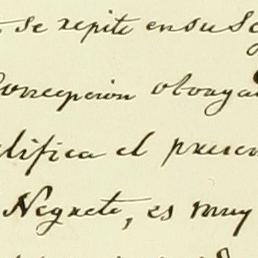 se repite en su
Concepcion otorga
lifica el presen
Negrete, es muy